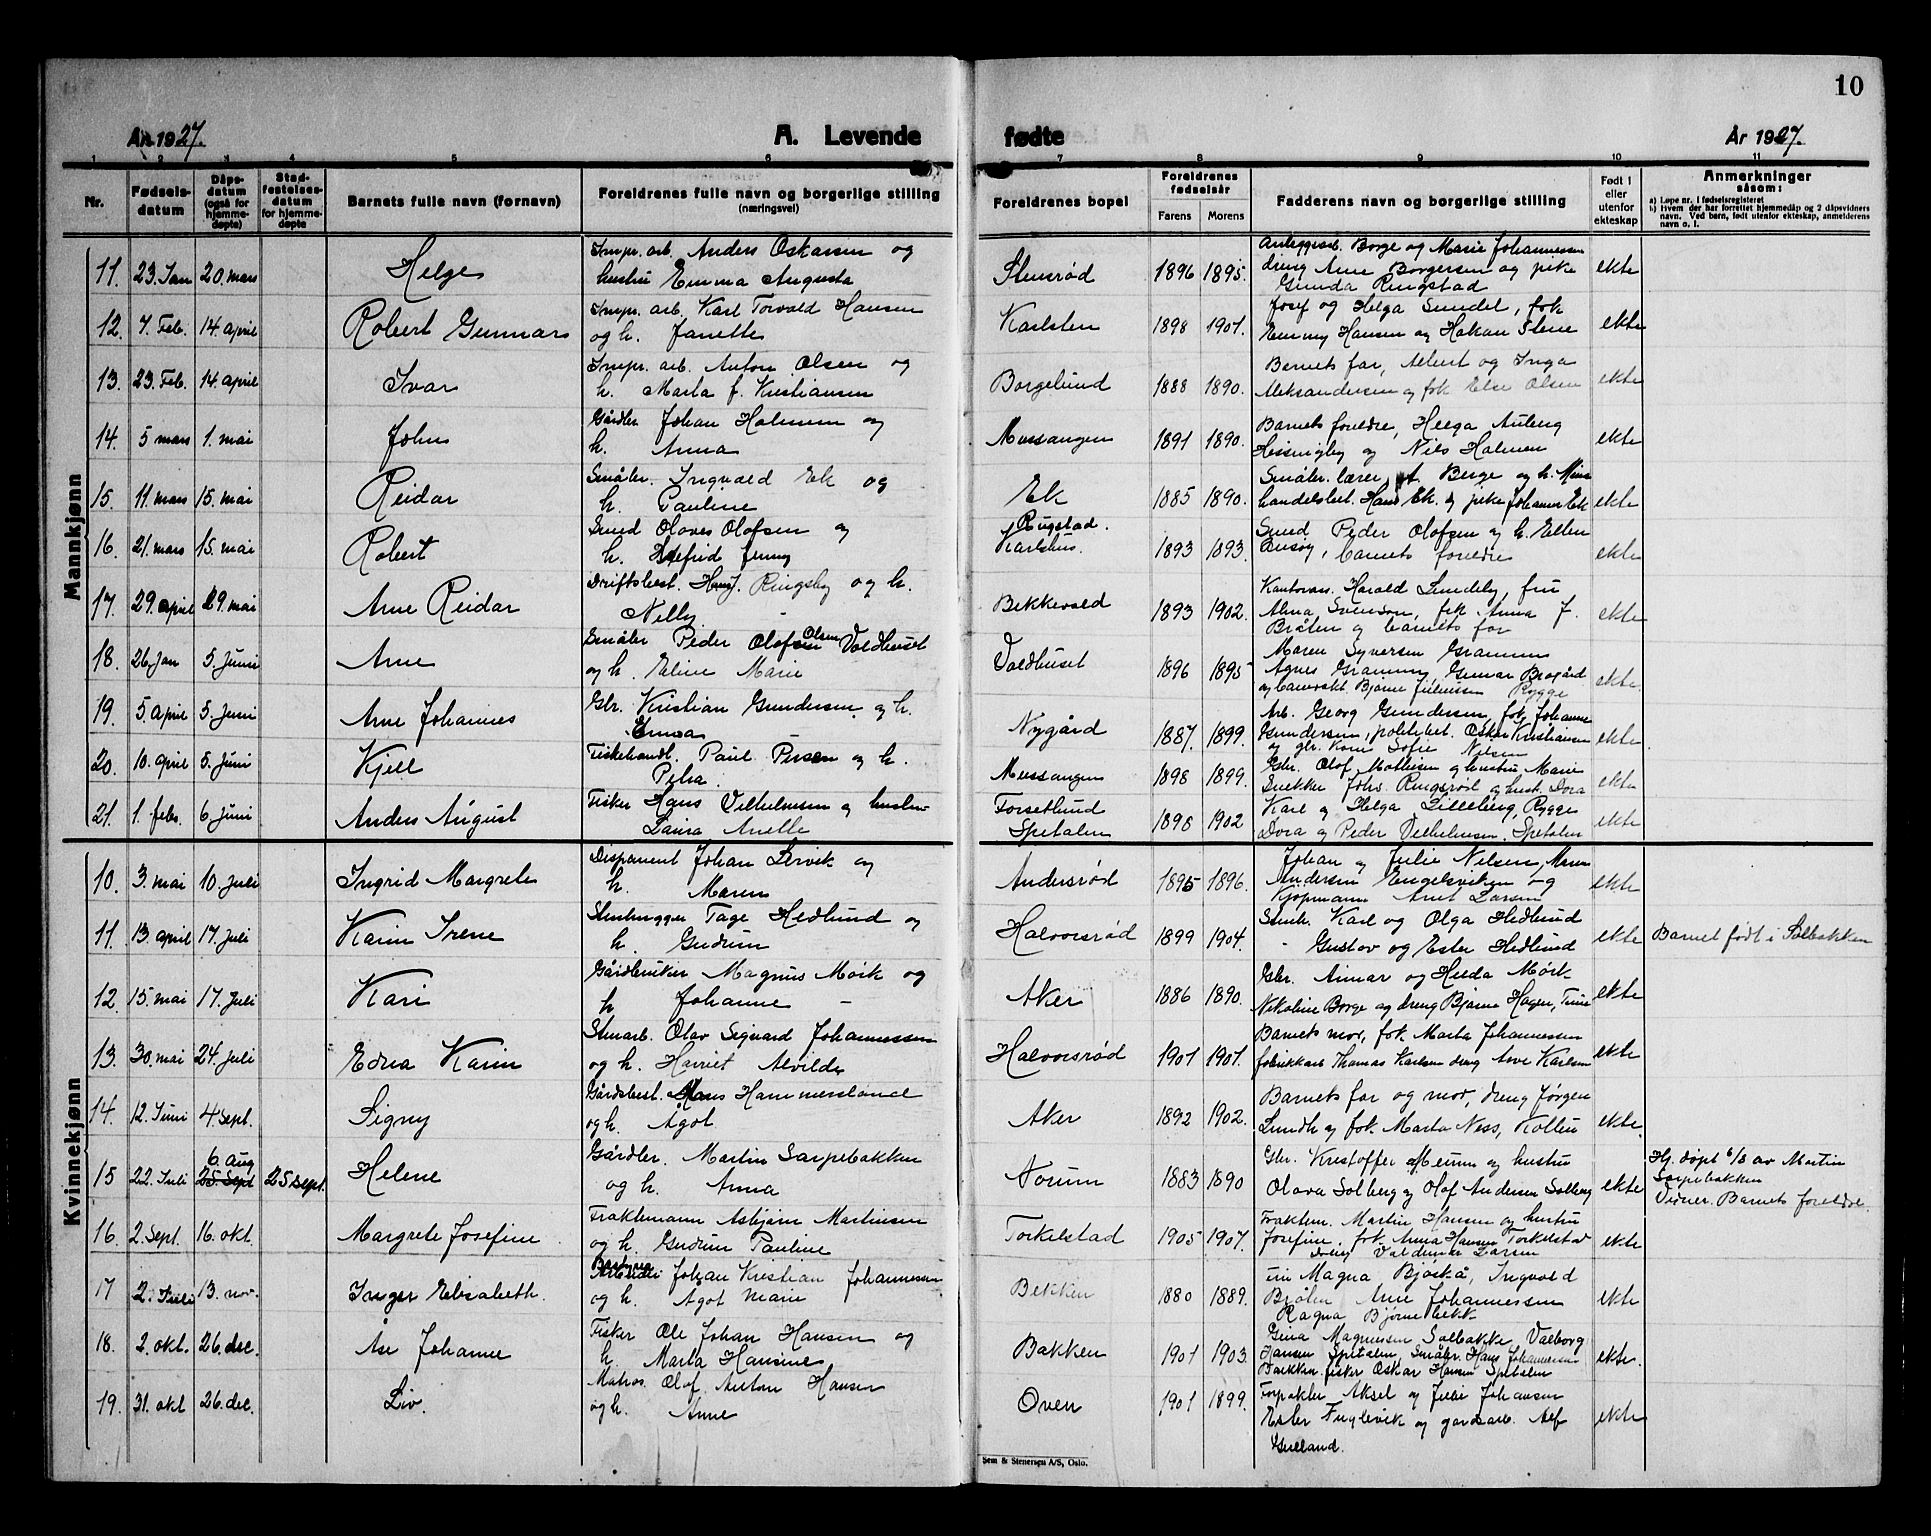 10
År 1927.
A. Levende
fødte
År 1927.
1 2 3 4 5 6 7 8 9 10 11
Nr.
Fødselsdatum
Dåpsdatum (også for hjemmedøpte)
Stadfestelsesdatum for hjemmedøpte
Barnets fulle navn (fornavn)
Foreldrenes fulle navn og borgerlige stilling (næringsvei)
Foreldrenes bopel
Foreldrenes fødselsår
Farens Morens
Fadderens navn og borgerlige stilling
Født i eller utenfor ekteskap
Anmerkninger såsom:
a) Løpe nr. i fødselsregisteret
b) Hvem der har forrettet hjemmedåp og 2 dåpsvidners navn. Ved børn, født utenfor ekteskap, anmelderens navn o. l.
Mannkjønn
11. 23. Jan 20. mars Helge Impr. arb. Anders Oskarsen og Stensrød 1896 1895. Anleggsarb. Borge og Marie Johannessen ekte
hustru Emma Augusta dreng Arne Borgersen og pike
Gunda Ringstad
12. 7. Feb. 14 april Robert Gunnar Impr. arb. Karl Torvald Hansen Karlsten 1898 1901. Josef og Helga Sundel, frk ekte
og h. Janette Emmy Hansen og Håkan Stene
13. 23. Feb. 14 april Ivar Impr. arb. Anton Olsen og Borgelund 1888 1890. Barnets far, Albert og Inga ekte
h. Marta f. Kristiansen Aleksandersen og frk Else Olsen
14. 5 mars 1. mai John Gårdbr Johan Holmen og Mossangen 1891 1890. Barnets foreldre, Helga Auberg ekte
h. Anna Hessingby og Nils Holmen
15. 11 mars 15. mai Reidar Småbr. Ingvald Ek og Ek 1885 1890. Småbr. lærer A. Berge og h. Mina ekte
h. Pauline handelsbet. Hans Ek. og pike Johanne Ek
Rugstad.
16. 21. mars 15. mai Robert Smed Olaves Olofsen og Karlshus. 1893 1893 Smed Peder Olofsen og h. Ellen ekte
h. Alfrid Jenny Busøy, barnets foreldre
17. 29. april 29. mai Arne Reidar Driftsbest. Hans J. Ringsby og h. Bekkevold 1893 1902. Kontorass. Harald Lundeby, fru ekte
Nelly Alma Svenson, frk. Anna J.
Bråten og barnets far
18. 26. Jan 5. Juni Arne Småbr Peder Olofsen Olsen Voldhuset Voldhuset 1896 1895 Maren Syversen Gramum ekte
og h. Eline Marie Agnes Gramum, Gunnar Brogård
og Bjarne Julius​sen Rygge
19. 5. april 5. Juni Arne Johannes Gbr. Kristian Gundersen og h. Nygård 1887. 1899. Arb. Georg Gundersen, frk. Johanne ekte
Emma Gundersen, politibet. Oskar Kristiansen
og gbr. kone Sofie Nilsen
20. 10. april 5. Juni Kjell Fiskehandl. Paul Persen og h. Mossangen 1898 1899. Gbr. Olof Mathisen og hustru Marie ekte
Petra Snekker Johs. Ringsrød og hust. Dora
21. 1. febr. 6. Juni Anders August Fisker Hans Vilhelmsen og hustru Forsetlund 1898 1902 Karl og Helga Lilleberg, Rygge ekte
Laura Anette Spetalen Dora og Peder Vilhelmsen. Spetalen
Kvinnekjønn
10. 3. mai 10. Juli Ingrid Margrete Disponent Johan Lervik og Andersrød 1895 1896. Johan og Julie Nilsen, Maren ekte
h. Maren Andersen Engelsviken og
Kjøpmann Arnt Larsen
11. 13. april 17. Juli Karin Irene Stenhugger Tage Hedlund og Halvorsrød 1899 1904. Stenh. Karl og Olga Hedlund ekte Barnet født i Solbakken
h. Gudrun " Gustav og Ester Hedlund
12. 15. mai 17. Juli Kari Gårdbruker Magnus Mørk og Aker 1886 1890. Gbr. Aimar og Hilda Mørk ekte
h Johanne Nikoline Borge og dreng Bjarne Hagen,
13. 30. mai 24. Juli Edna Karin Stenarb. Olav Sigvard Johannessen Halvorsrød 1901 1901. Barnets mor, frk. Marta Johannessen ekte
og h. Harriet Alvilde fabrikkarb Thomas Karlsen dreng Arve Karlsen
14. 12. Juni 4 Sept. Signy Gårdsbest. Hans Hammerslande Aker 1892 1902. Barnets far og mor, dreng Jørgen ekte.
og h. Agot Lundh og frk. Marta Ness, Kollen
6. Aug
15 22. Juli 25. Sept 25 sept. Helene Gårdbr. Martin Sarpebakken Norum 1883 1890 Gbr. Kristoffer Meum og hustru ekte Hj. døpt 6/8 av Martin
og h. Anna Olava Solberg og Olof Andersen Solberg Sarpebakken
Vidner. Barnets foreldre.
16. 2. Sept. 16. okt. Margrete Josefine Fraktemann Asbjørn Martinsen Torkelstad 1905 1907. Fraktem. Martin Hansen og hustru ekte
og h. Gudrun Pauline Josefine, frk. Anna Hansen Torkelstad
dreng Valdemar Larsen
17 2. Juli 13. nov. Inger Elisabeth. Arbeider Johan Kristian Johannessen Bekken 1880 1889. fru Magna Bjøskå, Ingvald ekte
og h. Agot Marie Bråten Arne Johannessen
Ragna Bjørnebekk
18. 2. okt. 26. dec. Åse Johanne Fisker Ole Johan Hansen og Bakken 1901 1903. Gina Magnussen Solbakke, Valborg ekte.
h. Marta Hansine Hansen Spetalen, Småbr. Hans Johannessen
Bakken, fisker Oskar Hansen Spetalen
19. 31. okt 26. dec. Liv. Matros. Olof Anton Hansen Oven 1901 1899. Forpakter Aksel og Julie Johansen ekte
og h. Anne Ester Fuglevik og gårdsarb. Alf
Gulland.
Sem & Stenersen A/S, Oslo.